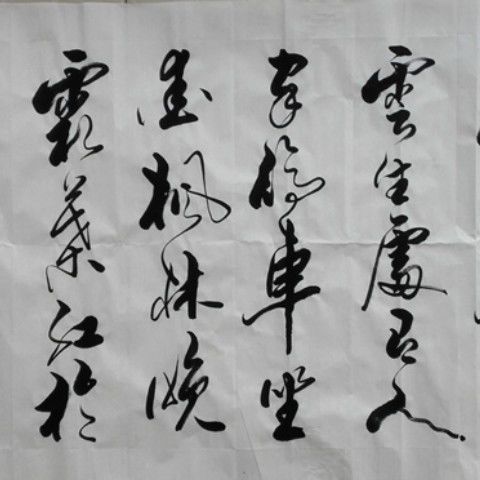 雲生處有人
家停車坐
愛楓林晚
霜葉紅於